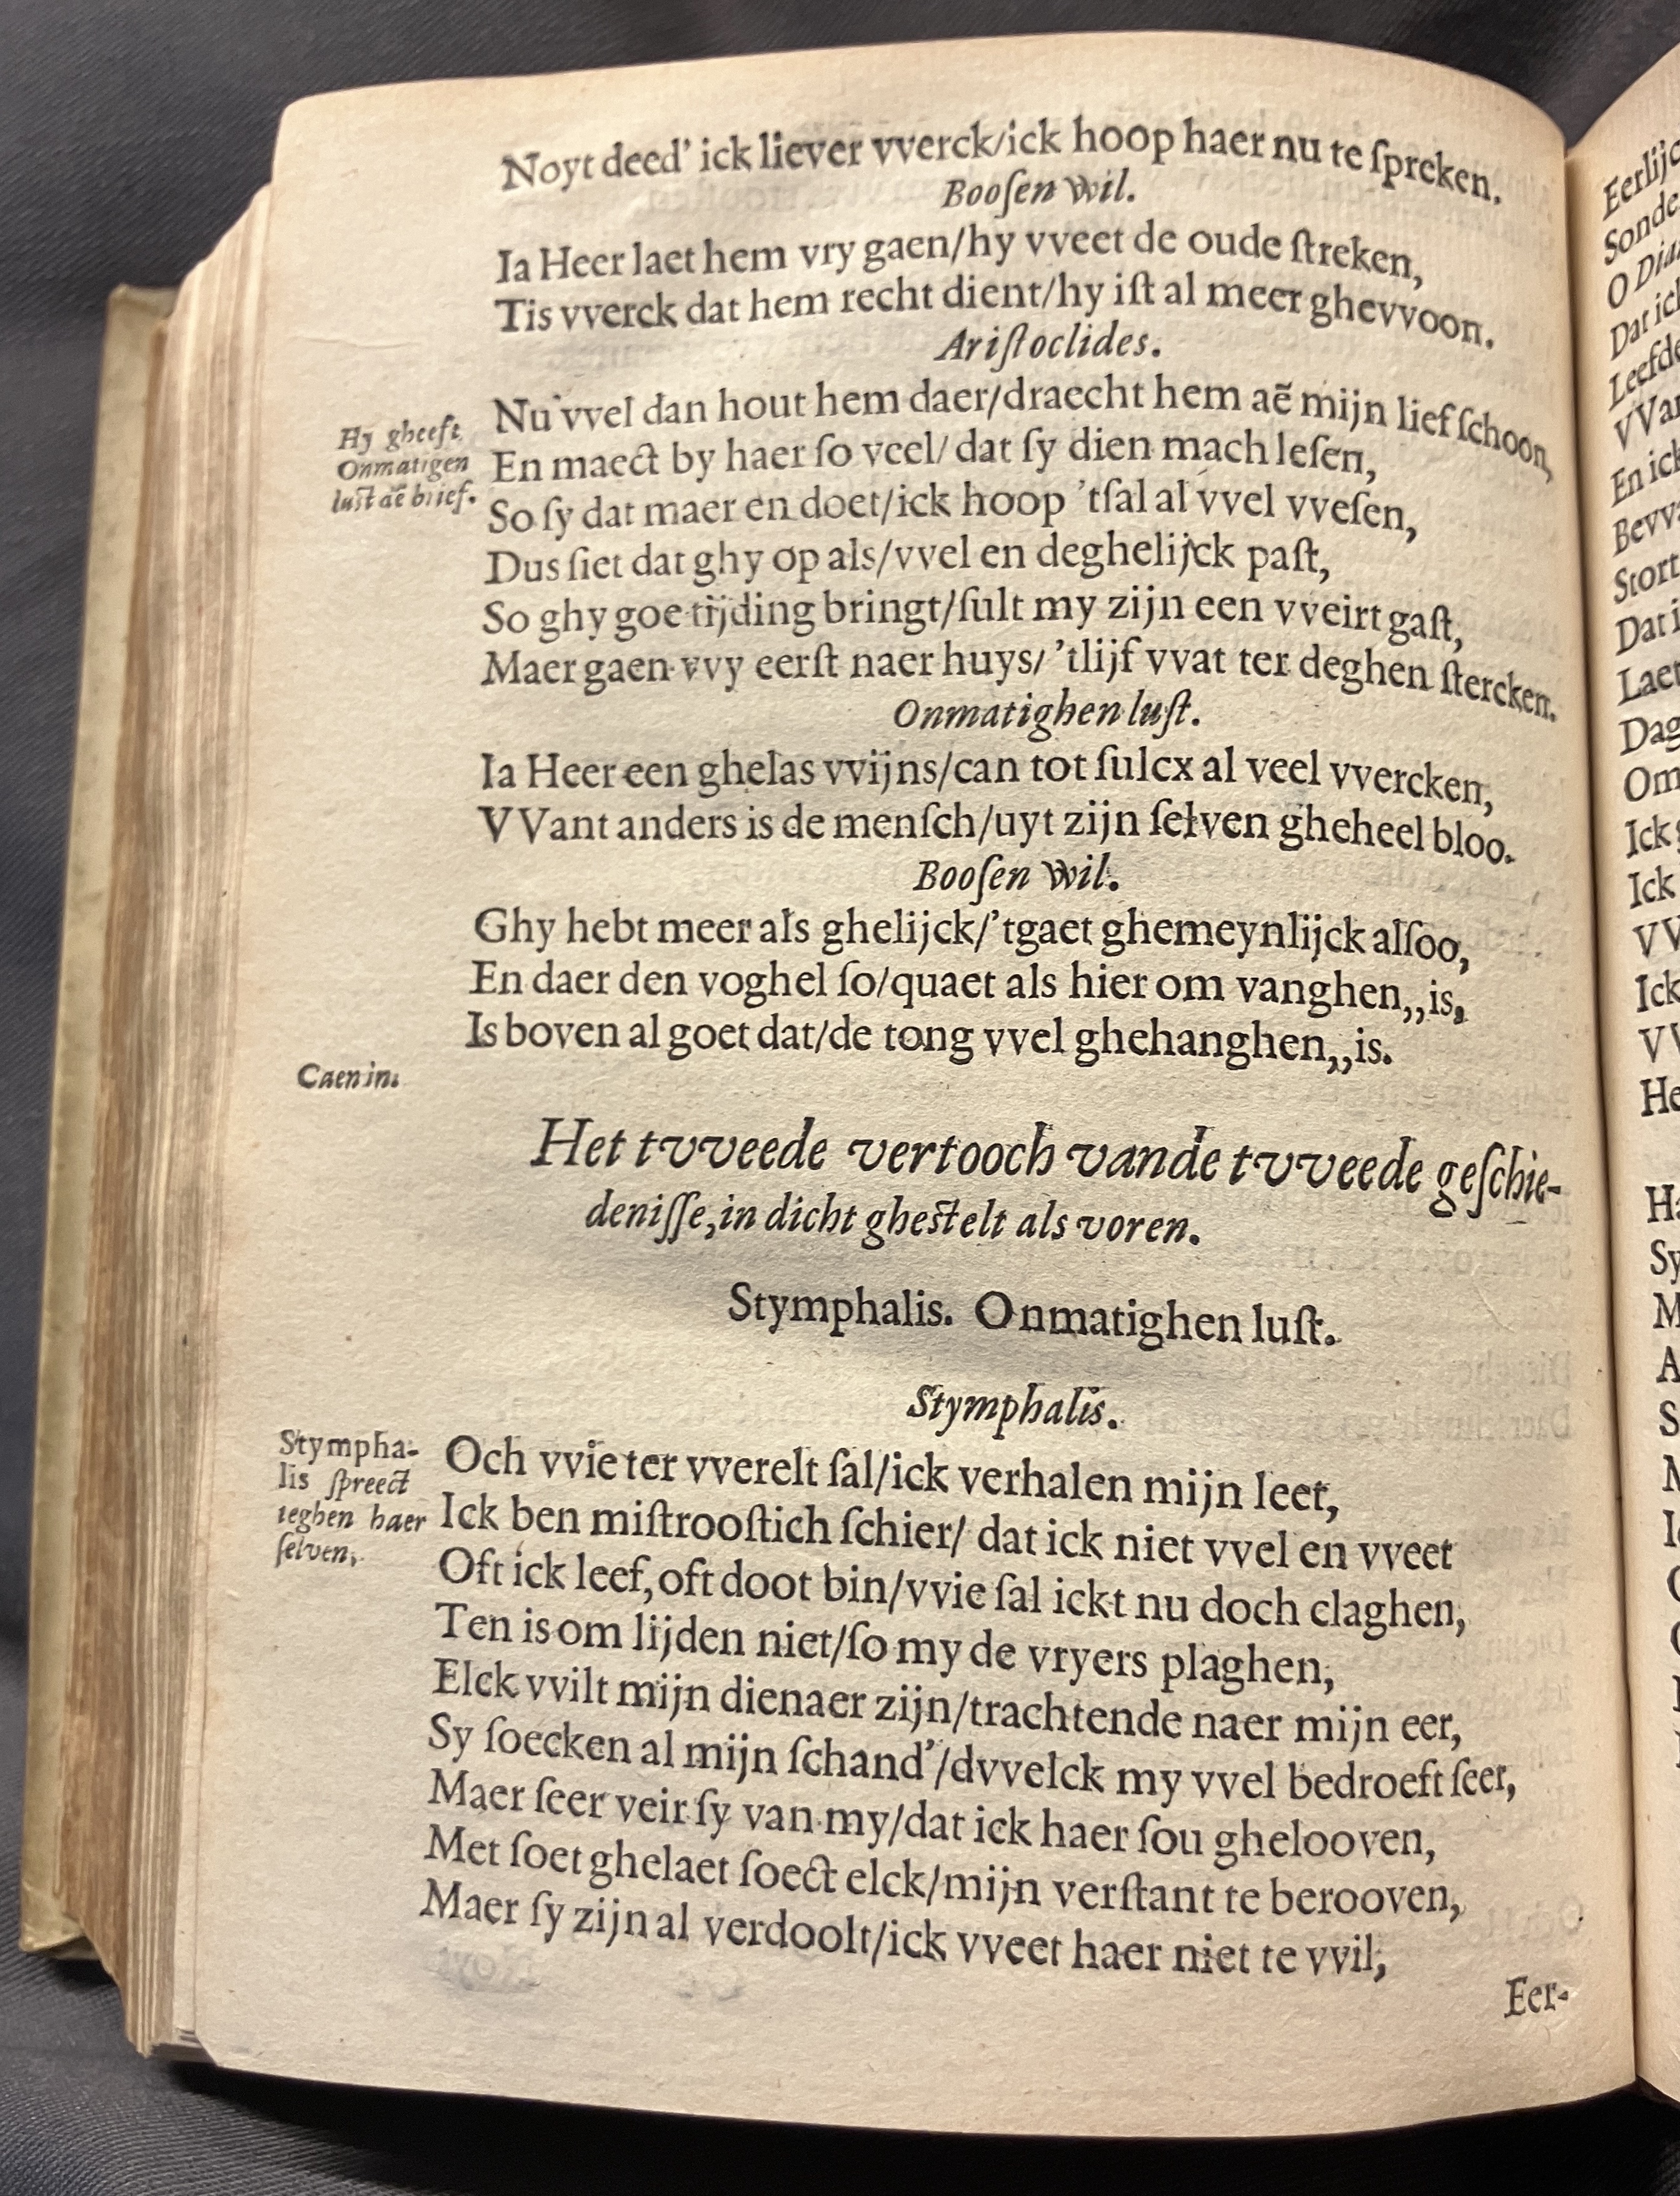 Noyt deed' ick liever vverck/ick hoop haer nu te ſpreken.
Booſen Wil.
Ia Heer laet hem vry gaen/hy vveet de oude ſtreken,
Tis vverck dat hem recht dient/hy iſt al meer ghevvoon.
Ariſtoclides.
Hy gheeft
Onmatigen
luſt aẽ brief.
Nu vvel dan hout hem daer/draecht hem aẽ mijn lief ſchoon,
En maect by haer ſo veel/ dat ſy dien mach leſen,
So ſy dat maer en doet/ick hoop 'tſal al vvel vveſen,
Dus ſiet dat ghy op als/vvel en deghelijck paſt,
So ghy goe tijding bringt/ſult my zijn een vveirt gaſt,
Maer gaen vvy eerſt naer huys/ 'tlijf vvat ter deghen ſtercken.
Onmatighen luſt.
Ia Heer een ghelas vvijns/can tot ſulcx al veel vvercken,
VVant anders is de menſch/uyt zijn ſelven gheheel bloo.
Booſen Wil.
Ghy hebt meer als ghelijck/'tgaet ghemeynlijck alſoo,
En daer den voghel ſo/quaet als hier om vanghen,,is,
Is boven al goet dat/de tong vvel ghehanghen,,is.
Caen in.
Het tvveede vertooch vande tvveede geſchie-
deniſſe,in dicht gheſtelt als voren.
Stymphalis. Onmatighen luſt.
Stymphalis.
Stympha-
lis ſpreect
teghen haer
ſelven.
Och vvie ter vverelt ſal/ick verhalen mijn leet,
Ick ben miſtrooſtich ſchier/ dat ick niet vvel en vveet
Oft ick leef,oft doot bin/vvie ſal ickt nu doch claghen,
Ten is om lijden niet/ſo my de vryers plaghen,
Elck vvilt mijn dienaer zijn/trachtende naer mijn eer,
Sy ſoecken al mijn ſchand'/dvvelck my vvel bedroeft ſeer,
Maer ſeer veir ſy van my/dat ick haer ſou ghelooven,
Met ſoet ghelaet ſoect elck/mijn verſtant te berooven,
Maer ſy zijn al verdoolt/ick vveet haer niet te vvil,
Eer-